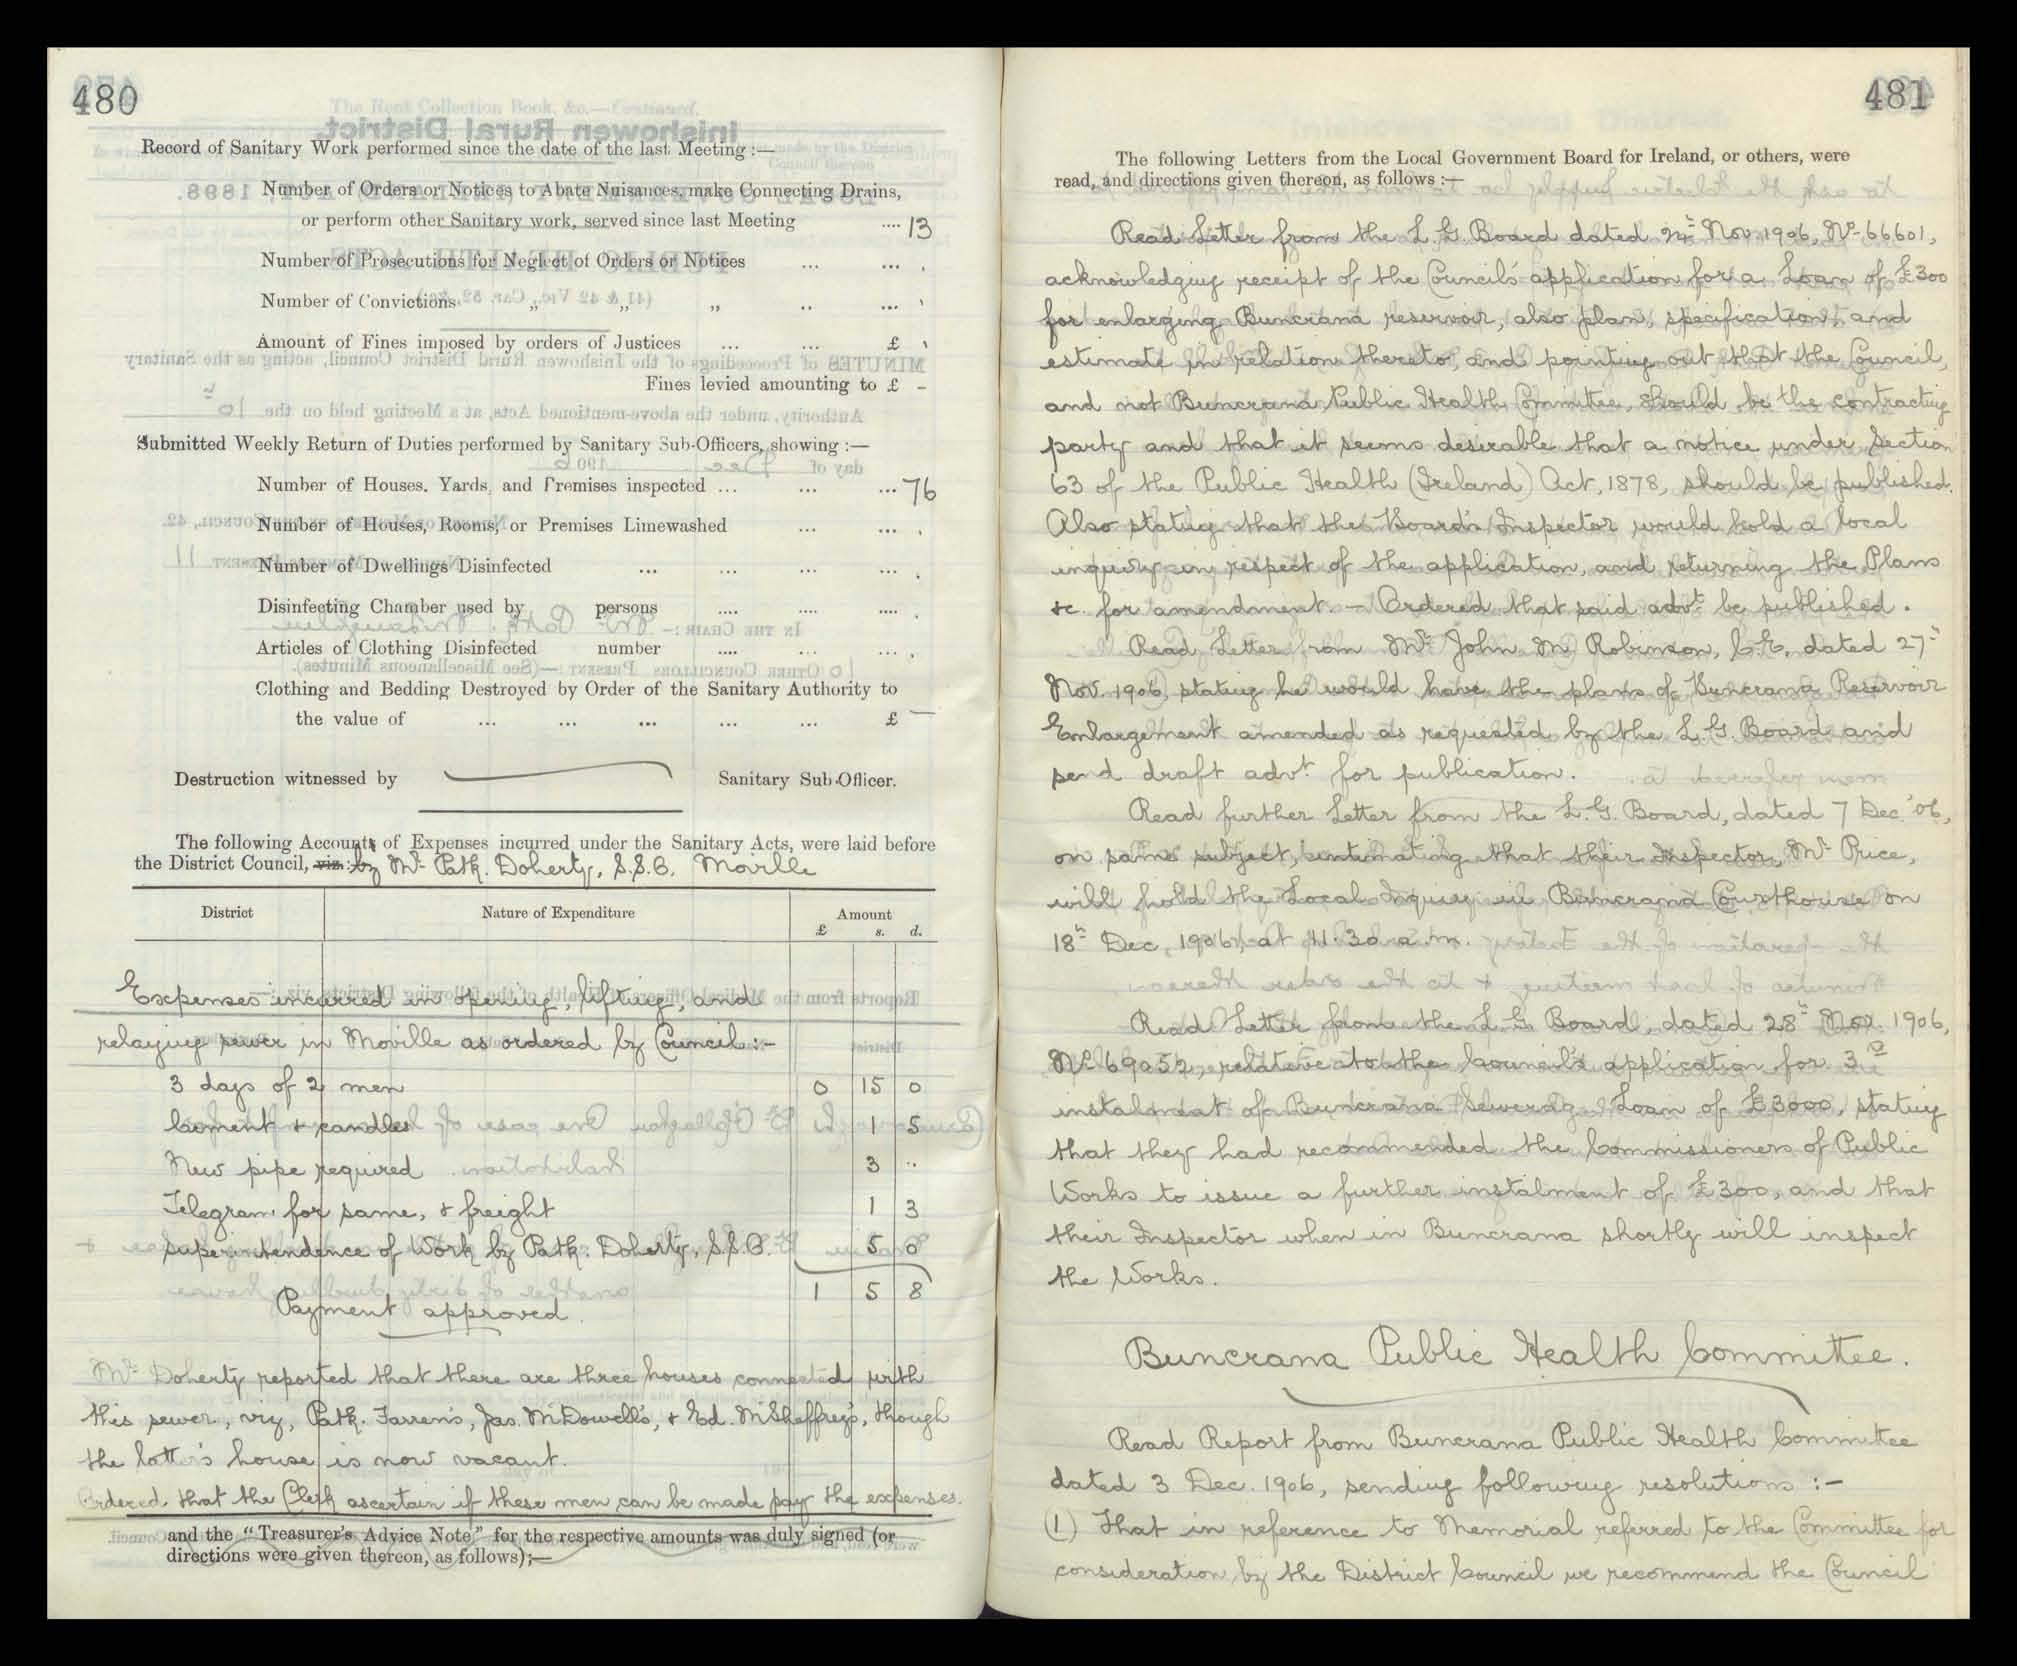 480
Record of Sanitary Work performed since the date of the last Meeting :—
Number of Orders or Notices to Abate Nuisances, make Connecting Drains,
or perform other Sanitary work, served since last Meeting .... 13
Number of Prosecutions for Neglect of Orders or Notices ... ...
Number of Convictions „ „ „ .. ...
Amount of Fines imposed by orders of Justices ... ... £
Fines levied amounting to £ -
Submitted Weekly Return of Duties performed by Sanitary Sub-Officers, showing :—
Number of Houses, Yards, and Premises inspected ... ... ... 76
Number of Houses, Rooms, or Premises Limewashed ... ...
Number of Dwellings Disinfected ... ... ... ...
Disinfecting Chamber used by persons .... .... ....
Articles of Clothing Disinfected number .... ... ...
Clothing and Bedding Destroyed by Order of the Sanitary Authority to
the value of ... ... ... ... ... £ —
Destruction witnessed by Sanitary Sub-Officer.
The following Accounts of Expenses incurred under the Sanitary Acts, were laid before
the District Council, viz.: by Mr. Patk. Doherty, S.S.O. Moville
District Nature of Expenditure Amount
£ s. d.
Expenses incurred in opening, lifting, and
relaying sewer in Moville as ordered by Council :-
3 days of 2 men 0 15 0
Cement & candles 1 5
New pipe required 3 ..
Telegram for same, & freight 1 3
Superintendence of Work by Patk. Doherty, S.S.O. 5 0
1 5 8
Payment approved
Mr. Doherty reported that there are three houses connected with
this sewer, viz, Patk. Farren's, Jas. McDowell's, & Ed. McSheffrey's, though
the latter's house is now vacant.
Ordered that the Clerk ascertain if these men can be made pay the expenses.
and the "Treasurer's Advice Note" for the respective amounts was duly signed (or
directions were given thereon, as follows);—
481
The following Letters from the Local Government Board for Ireland, or others, were
read, and directions given thereon, as follows :—
Read Letter from the L. G. Board dated 24th Nov 1906, No. 66601,
acknowledging receipt of the Council's application for a Loan of £300
for enlarging Buncrana reservoir, also plan, specification, and
estimate in relation thereto, and pointing out that the Council,
and not Buncrana Public Health Committee, should be the contracting
party and that it seems desirable that a notice under Section
63 of the Public Health (Ireland) Act, 1878, should be published.
Also stating that the Board's Inspector would hold a local
inquiry in respect of the application, and returning the Plans
&c. for amendment. — Ordered that said advt. be published.
Read Letter from Mr. John M. Robinson, C.E., dated 27th
Nov. 1906, stating he would have the plans of Buncrana Reservoir
Enlargement amended as requested by the L. G. Board and
send draft advt. for publication.
Read further Letter from the L. G. Board, dated 7 Dec. '06,
on same subject, intimating that their Inspector, Mr. Price,
will hold the Local Inquiry in Buncrana Courthouse on
18th Dec, 1906, at 11.30 a.m.
Read Letter from the L. G. Board, dated 28th Nov. 1906,
No. 69052, relative to the Council's application for 3rd
instalment of Buncrana Sewerage Loan of £3000, stating
that they had recommended the Commissioners of Public
Works to issue a further instalment of £300, and that
their Inspector when in Buncrana shortly will inspect
the Works.
Buncrana Public Health Committee.
Read Report from Buncrana Public Health Committee
dated 3 Dec. 1906, sending following resolutions :-
(1) That in reference to Memorial referred to the Committee for
consideration by the District Council we recommend the Council